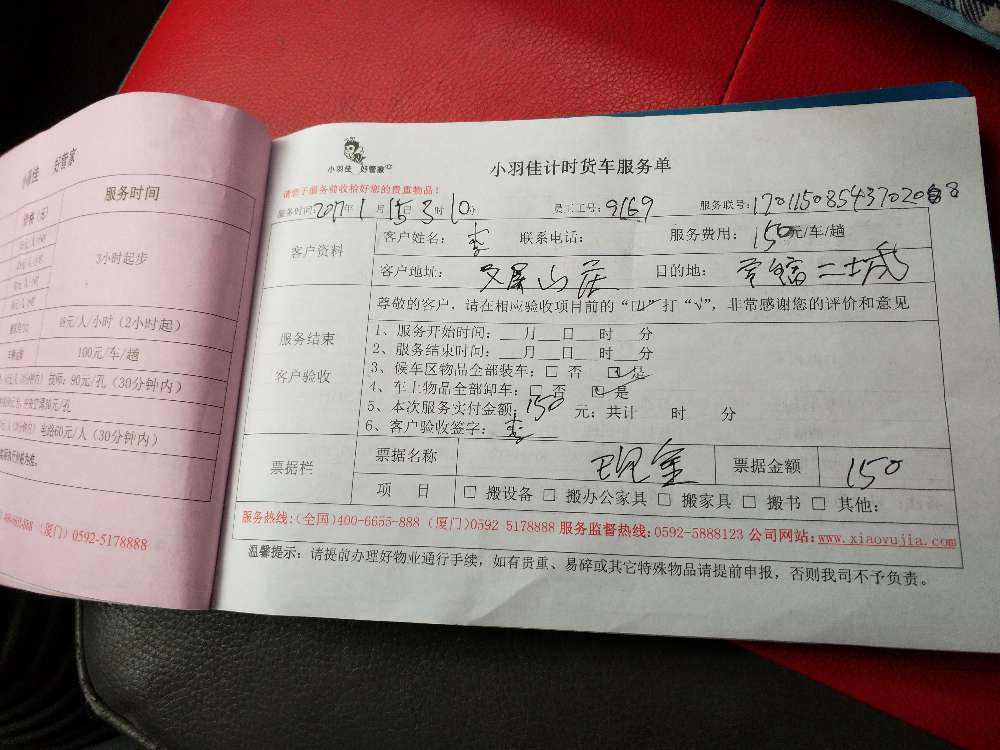 好管家
服务时间
3小时起步
元/人/小时（2小时起）
100元/车/趟
技师：90元/孔（30分钟内）
电路60元/人（30分钟内）
（厦门）0592-5178888
小羽佳 好管家
小羽佳计时货车服务单
请您于服务前收拾好您的贵重物品！
服务时间2017年1月15日3时10分 员工工号：9169 服务联号：
客户资料
客户姓名：李 联系电话： 服务费用：150元/车/趟
客户地址： 山庄 目的地：
服务结束
客户验收
尊敬的客户，请在相应验收项目前的“□”打“√”，非常感谢您的评价和意见
1、服务开始时间：___月___日___时___分
2、服务结束时间：___月___日___时___分
3、候车区物品全部装车：□ 否 ☑ 是
4、车上物品全部卸车：□ 否 ☑ 是
5、本次服务实付金额：150 元；共计 时 分
6、客户验收签字：李
票据栏
票据名称 现金 票据金额 150
项 目 □ 搬设备 □ 搬办公家具 □ 搬家具 □ 搬书 □ 其他：
服务热线：（全国）400-6655-888（厦门）0592 5178888 服务监督热线：0592-5888123 公司网站：www.xiaoyujia.com
温馨提示：请提前办理好物业通行手续，如有贵重、易碎或其它特殊物品请提前申报，否则我司不予负责。